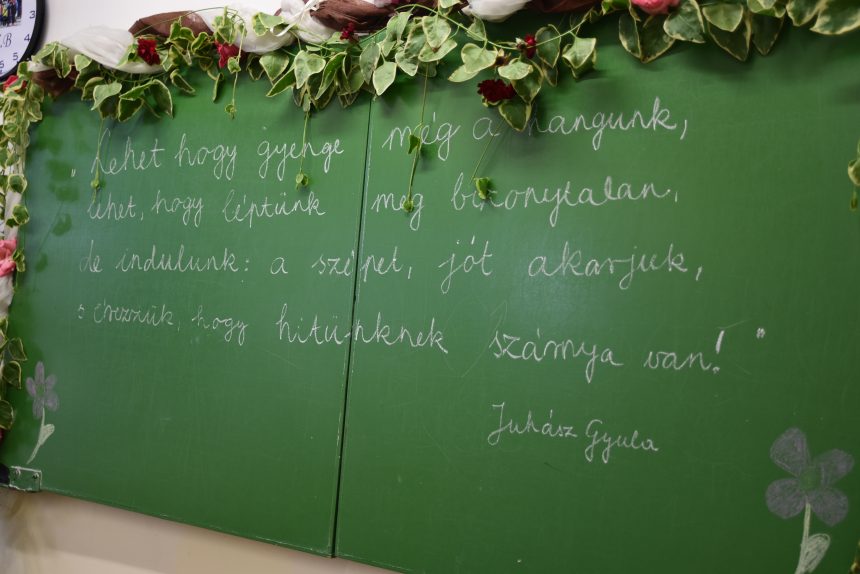 „Lehet hogy gyenge még a hangunk,
lehet, hogy léptünk még bizonytalan,
de indulunk: a szépet, jót akarjuk,
s érezzük, hogy hitünknek szárnya van!"
Juhász Gyula